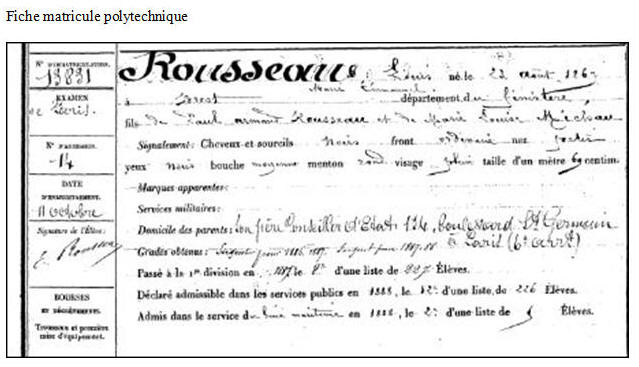 Fiche matricule polytechnique
N° D'IMMATRICULATION.
13831
EXAMEN
de Paris.
N° D'ADMISSION.
14
DATE
D'ENREGISTREMENT.
11 octobre
Signature de l'Élève:
E. Rousseau
BOURSES
ET DÉGRÈVEMENTS.
Trousseau et première
mise d'équipement.
Rousseau, Louis né le 23 août 1867
Marie Emmanuel
à Brest département du Finistère,
fils de Paul armand Rousseau et de Marie Louise Michau
Signalement: Cheveux et sourcils Noirs front ordinaire nez
yeux noirs bouche moyenne menton rond visage plein taille d'un mètre 69 centim.
Marques apparentes:
Services militaires:
Domicile des parents: son père Conseiller d'Etat 124, boulevard St Germain
à Paris (6e arrt)
Grades obtenus: Sergent pour 1886.1887. Sergent pour 1887.88
Passé à la 1re division en 1887 le 8e d'une liste de 227 Élèves.
Déclaré admissible dans les services publics en 1888, le 12e d'une liste de 226 Élèves.
Admis dans le service du Génie maritime en 1888, le 2e d'une liste de 5 Élèves.